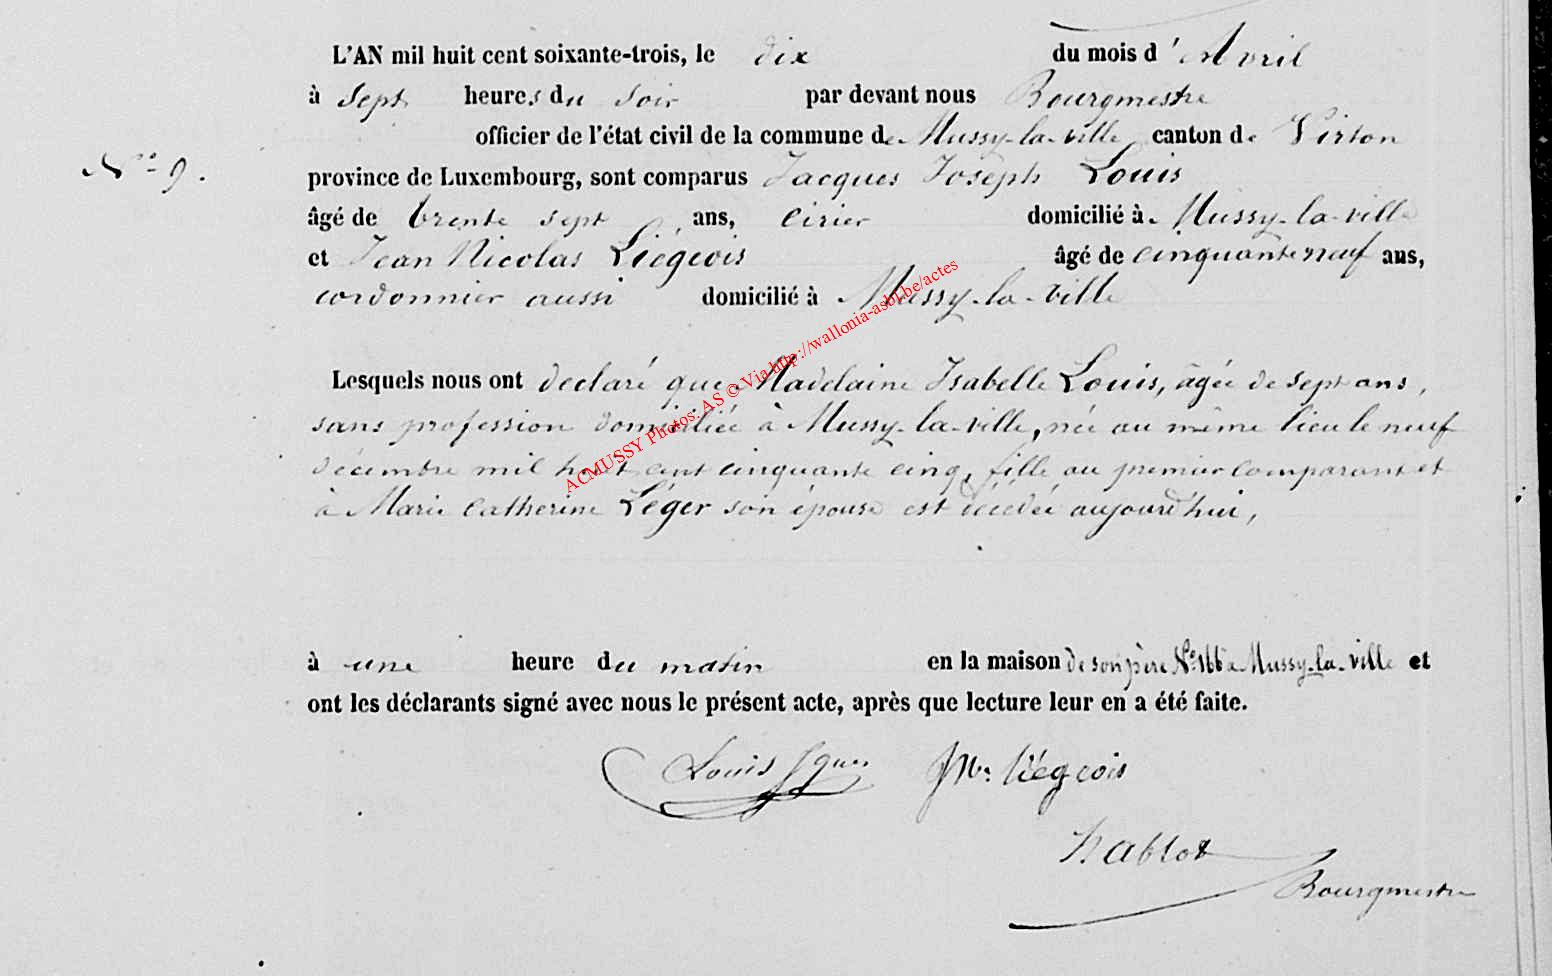 L'AN mil huit cent soixante-trois, le dix du mois d'Avril
à sept heures du soir par devant nous Bourgmestre
officier de l'état civil de la commune de Mussy-la-ville canton de Virton
N° 9.
province de Luxembourg, sont comparus Jacques Joseph Louis
âgé de trente sept ans, cirier domicilié à Mussy-la-ville
et Jean Nicolas Liégeois âgé de cinquante neuf ans,
cordonnier aussi domicilié à Mussy-la-ville
Lesquels nous ont declaré que Madelaine Isabelle Louis, âgée de sept ans,
sans profession domiciliée à Mussy-la-ville, née au même lieu le neuf
décembre mil huit cent cinquante cinq, fille au premier comparant et
à Marie Catherine Léger son épouse est décédée aujourd'hui,
à une heure du matin en la maison de son père N° 166 à Mussy-la-ville et
ont les déclarants signé avec nous le présent acte, après que lecture leur en a été faite.
Louis Jques JNs Liégeois
Hablot
Bourgmestre
ACMUSSY Photos: AS © Via http://wallonia-asbl.be/actes